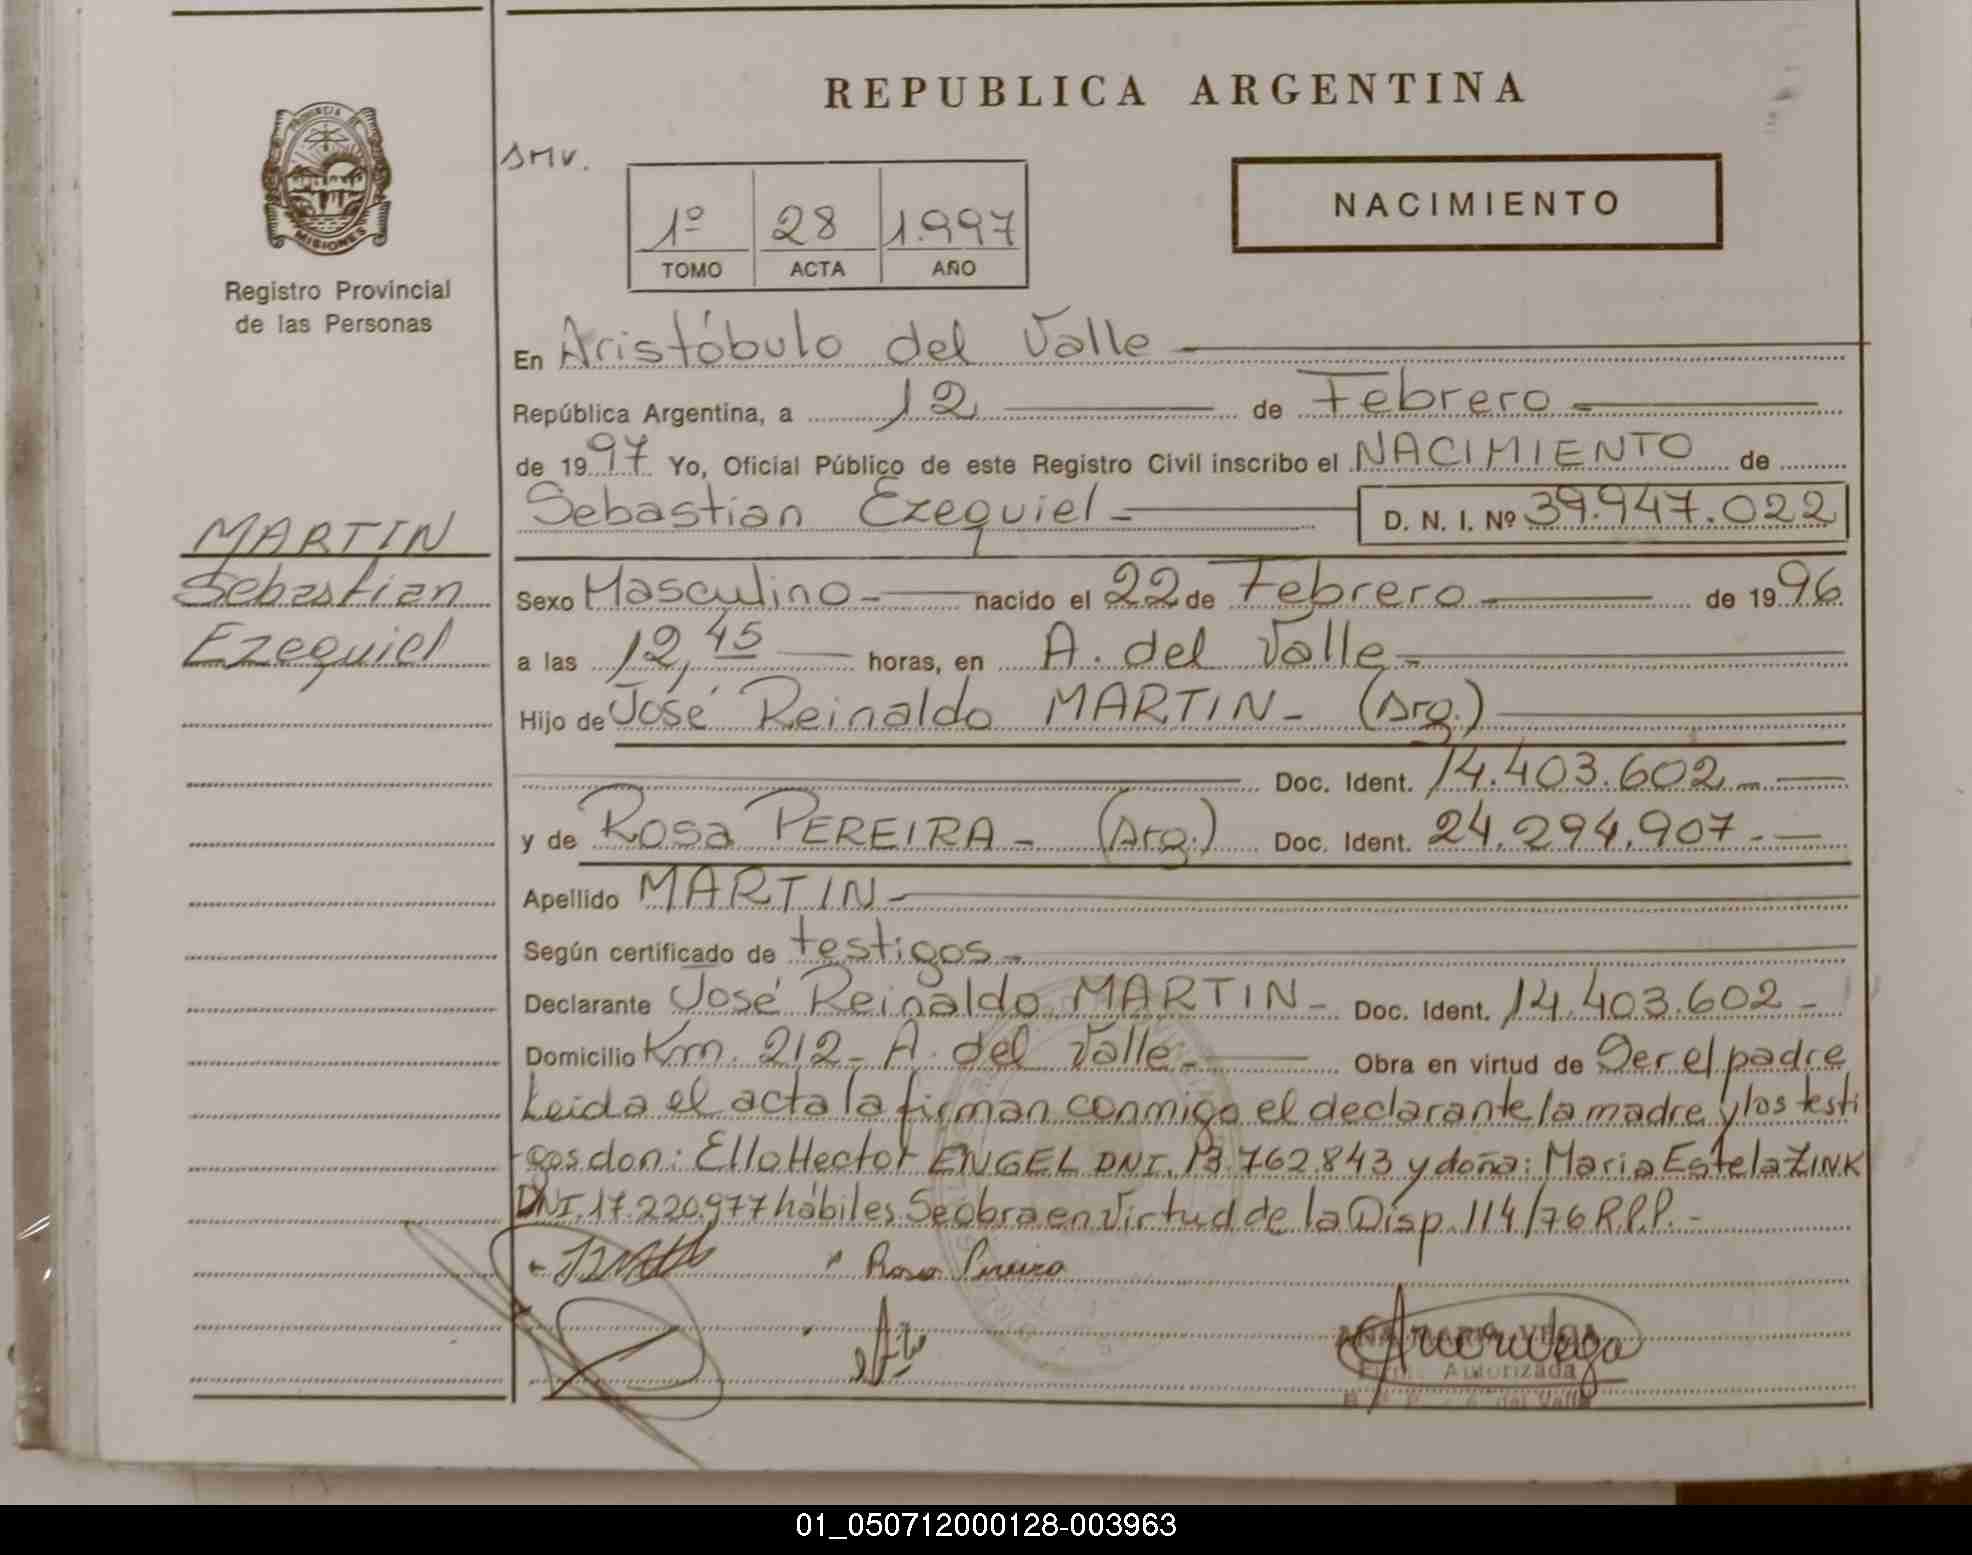 REPUBLICA ARGENTINA
PROVINCIA DE
MISIONES
Registro Provincial
de las Personas
SMV.
1º 28 1.997
TOMO ACTA AÑO
NACIMIENTO
En Aristóbulo del Valle
República Argentina, a 12 de Febrero
de 1997 Yo, Oficial Público de este Registro Civil inscribo el NACIMIENTO de
Sebastian Ezequiel D. N. I. Nº 39.947.022
MARTIN
Sebastian
Ezequiel
Sexo Masculino nacido el 22 de Febrero de 1996
a las 12,45 horas, en A. del Valle
Hijo de José Reinaldo MARTIN - (Arg.)
Doc. Ident. 14.403.602
y de Rosa PEREIRA - (Arg.) Doc. Ident. 24.294.907
Apellido MARTIN
Según certificado de testigos
Declarante José Reinaldo MARTIN - Doc. Ident. 14.403.602
Domicilio Km. 212 - A. del Valle Obra en virtud de Ser el padre
Leida el acta la firman conmigo el declarante la madre y los testi
gos don: Ello Hector ENGEL DNI. 13.762.843 y doña: Maria Estela ZINK
DNI. 17.220.977 hábiles Se obra en Virtud de la Disp. 114/76 R.P.P. -
Rosa Pereira
ANA MARIA VEGA
Autorizada
del Valle
01_050712000128-003963